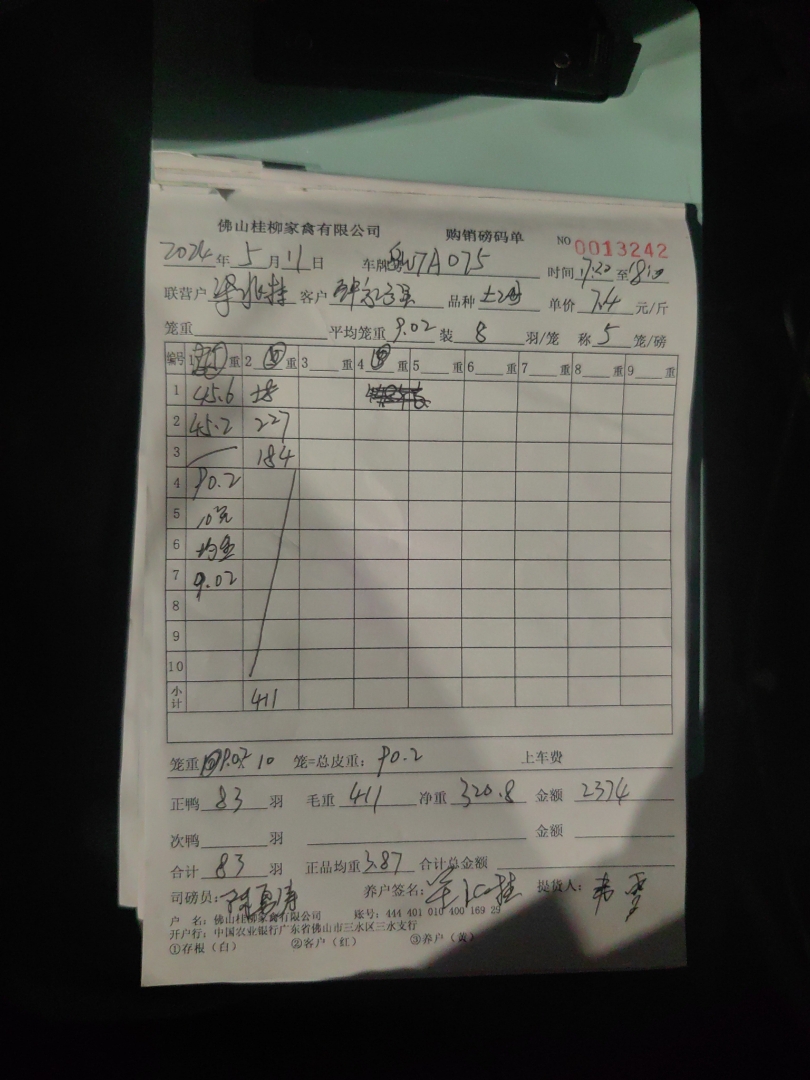 佛山桂柳家禽有限公司 购销磅码单 NO 0013242
2024年 5 月 11 日 车牌 W7A075 时间 17:20 至 18:00
联营户 客户 品种 土 单价 7.4 元/斤
笼重 平均笼重 9.02 装 8 羽/笼 称 5 笼/磅
编号 1 重 2 重 3 重 4 重 5 重 6 重 7 重 8 重 9 重
1 45.6
2 45.2 227
3 184
4 90.2
5 10
6 均重
7 9.02
8
9
10
小计 411
笼重 9.02 10 笼=总皮重: 90.2 上车费
正鸭 83 羽 毛重 411 净重 320.8 金额 2374
次鸭 羽 金额
合计 83 羽 正品均重 3.87 合计总金额
司磅员: 养户签名: 提货人:
户 名: 佛山桂柳家禽有限公司 账号: 444 401 010 400 169 29
开户行: 中国农业银行广东省佛山市三水区三水支行
①存根（白） ②客户（红） ③养户（黄）